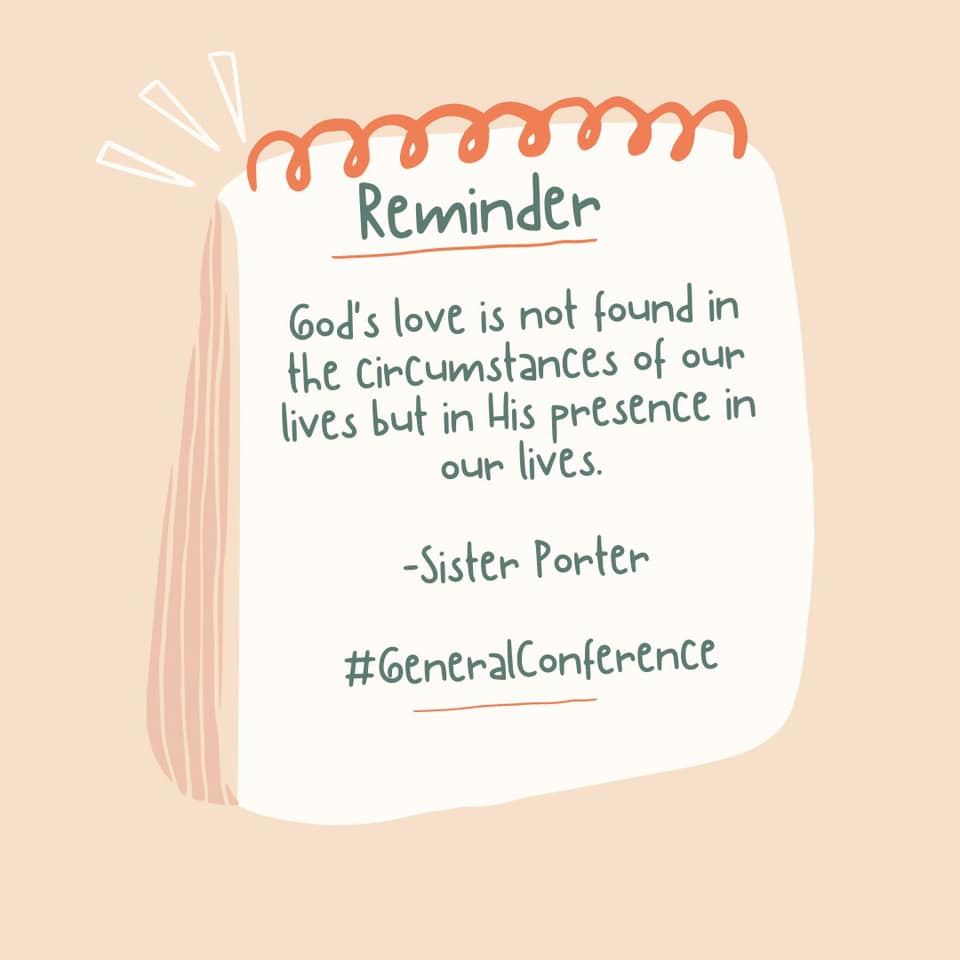 Reminder
God's love is not found in
the circumstances of our
lives but in His presence in
our lives.
-Sister Porter
#GeneralConference